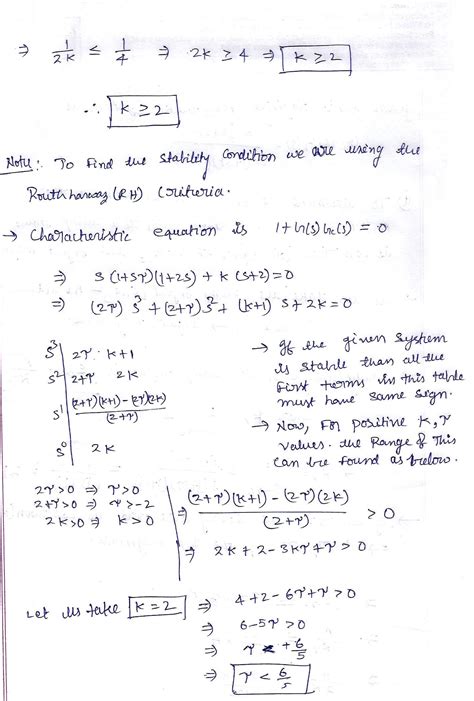 ⇒ 1/2K ≤ 1/4 ⇒ 2K ≥ 4 ⇒ K ≥ 2
∴ K ≥ 2
Note: To Find the stability Condition we are using the
Routh harwaz (RH) Criteria.
→ Characheristic equation is 1+G(s)Gc(s) = 0
⇒ S(1+Sτ)(1+2S) + K(S+2)=0
⇒ (2τ) S³ + (2+τ) S² + (K+1) S + 2K = 0
S³ | 2τ K+1
S² | 2+τ 2K
S¹ | (2+τ)(K+1) - (2τ)(2K) / (2+τ)
S⁰ | 2K
→ If the given System
is stable than all the
First terms in this table
must have same sign.
→ Now, For positive K, τ
values. the Range of This
Can be found as below.
2τ>0 ⇒ τ>0
2+τ>0 ⇒ τ>-2
2K>0 ⇒ K>0
⇒ (2+τ)(K+1) - (2τ)(2K) / (2+τ) > 0
⇒ 2K + 2 - 3Kτ + τ > 0
Let us take K=2 ⇒ 4+2-6τ+τ > 0
⇒ 6-5τ > 0
⇒ τ < +6/5
⇒ τ < 6/5